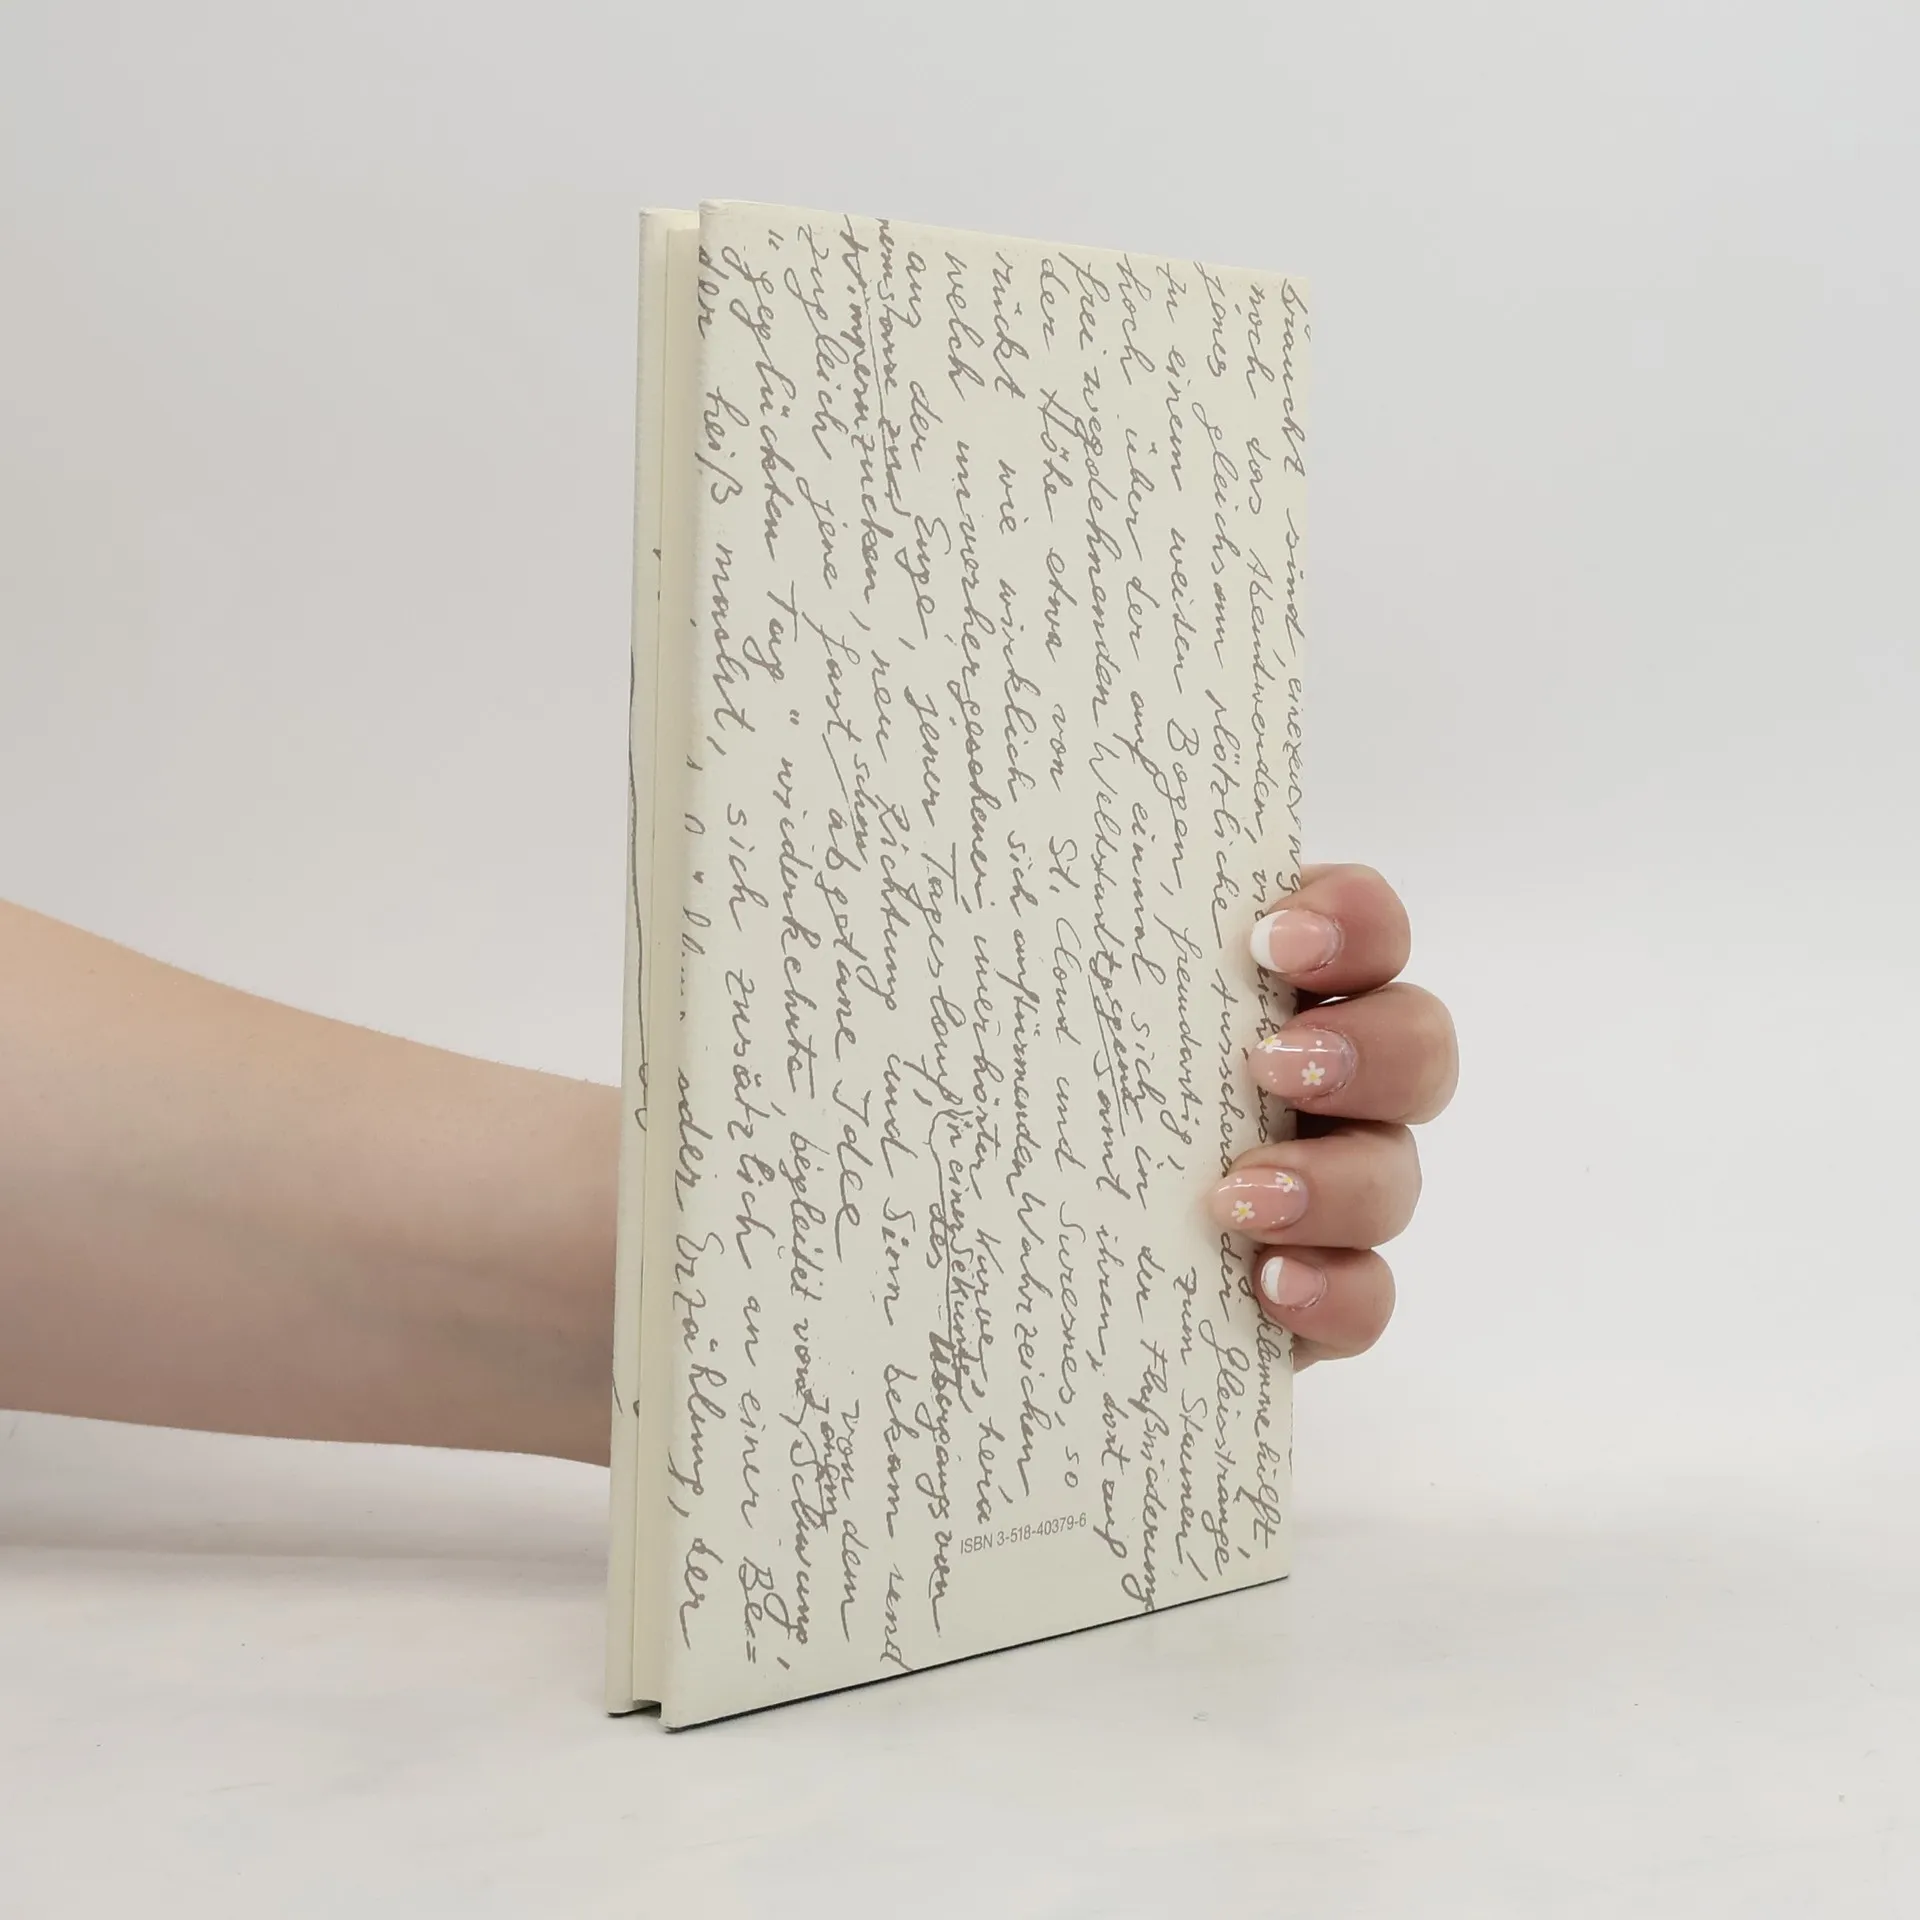 braucht sind,
noch das Abendwerden,
jenes gleichsam plötzliche Ausscheren der Gleisstränge
zu einem weiten Bogen, fremdartig, zum Staunen,
hoch über der auf einmal sich in der Flußniederung
frei wegdehnenden Weltstadt gesamt ihren, dort auf
der Höhe etwa von St. Cloud und Suresnes, so
rückt wie wirklich sich auftürmenden Wahrzeichen
welch unvorhergesehener, unerhörter Kurve, hera
aus der Enge, jener Tageslauf, in einer Sekunde des Übergangs von
zum
Wimpernzucken, neu Richtung und Sinn bekam und
zugleich jene fast schon abgetane Idee von dem
"geglückten Tag" wiederkehrte, begleitet vom Schwung,
der heiß macht, sich zusätzlich an einer Be=
oder Erzählung, der
ISBN 3-518-40379-6